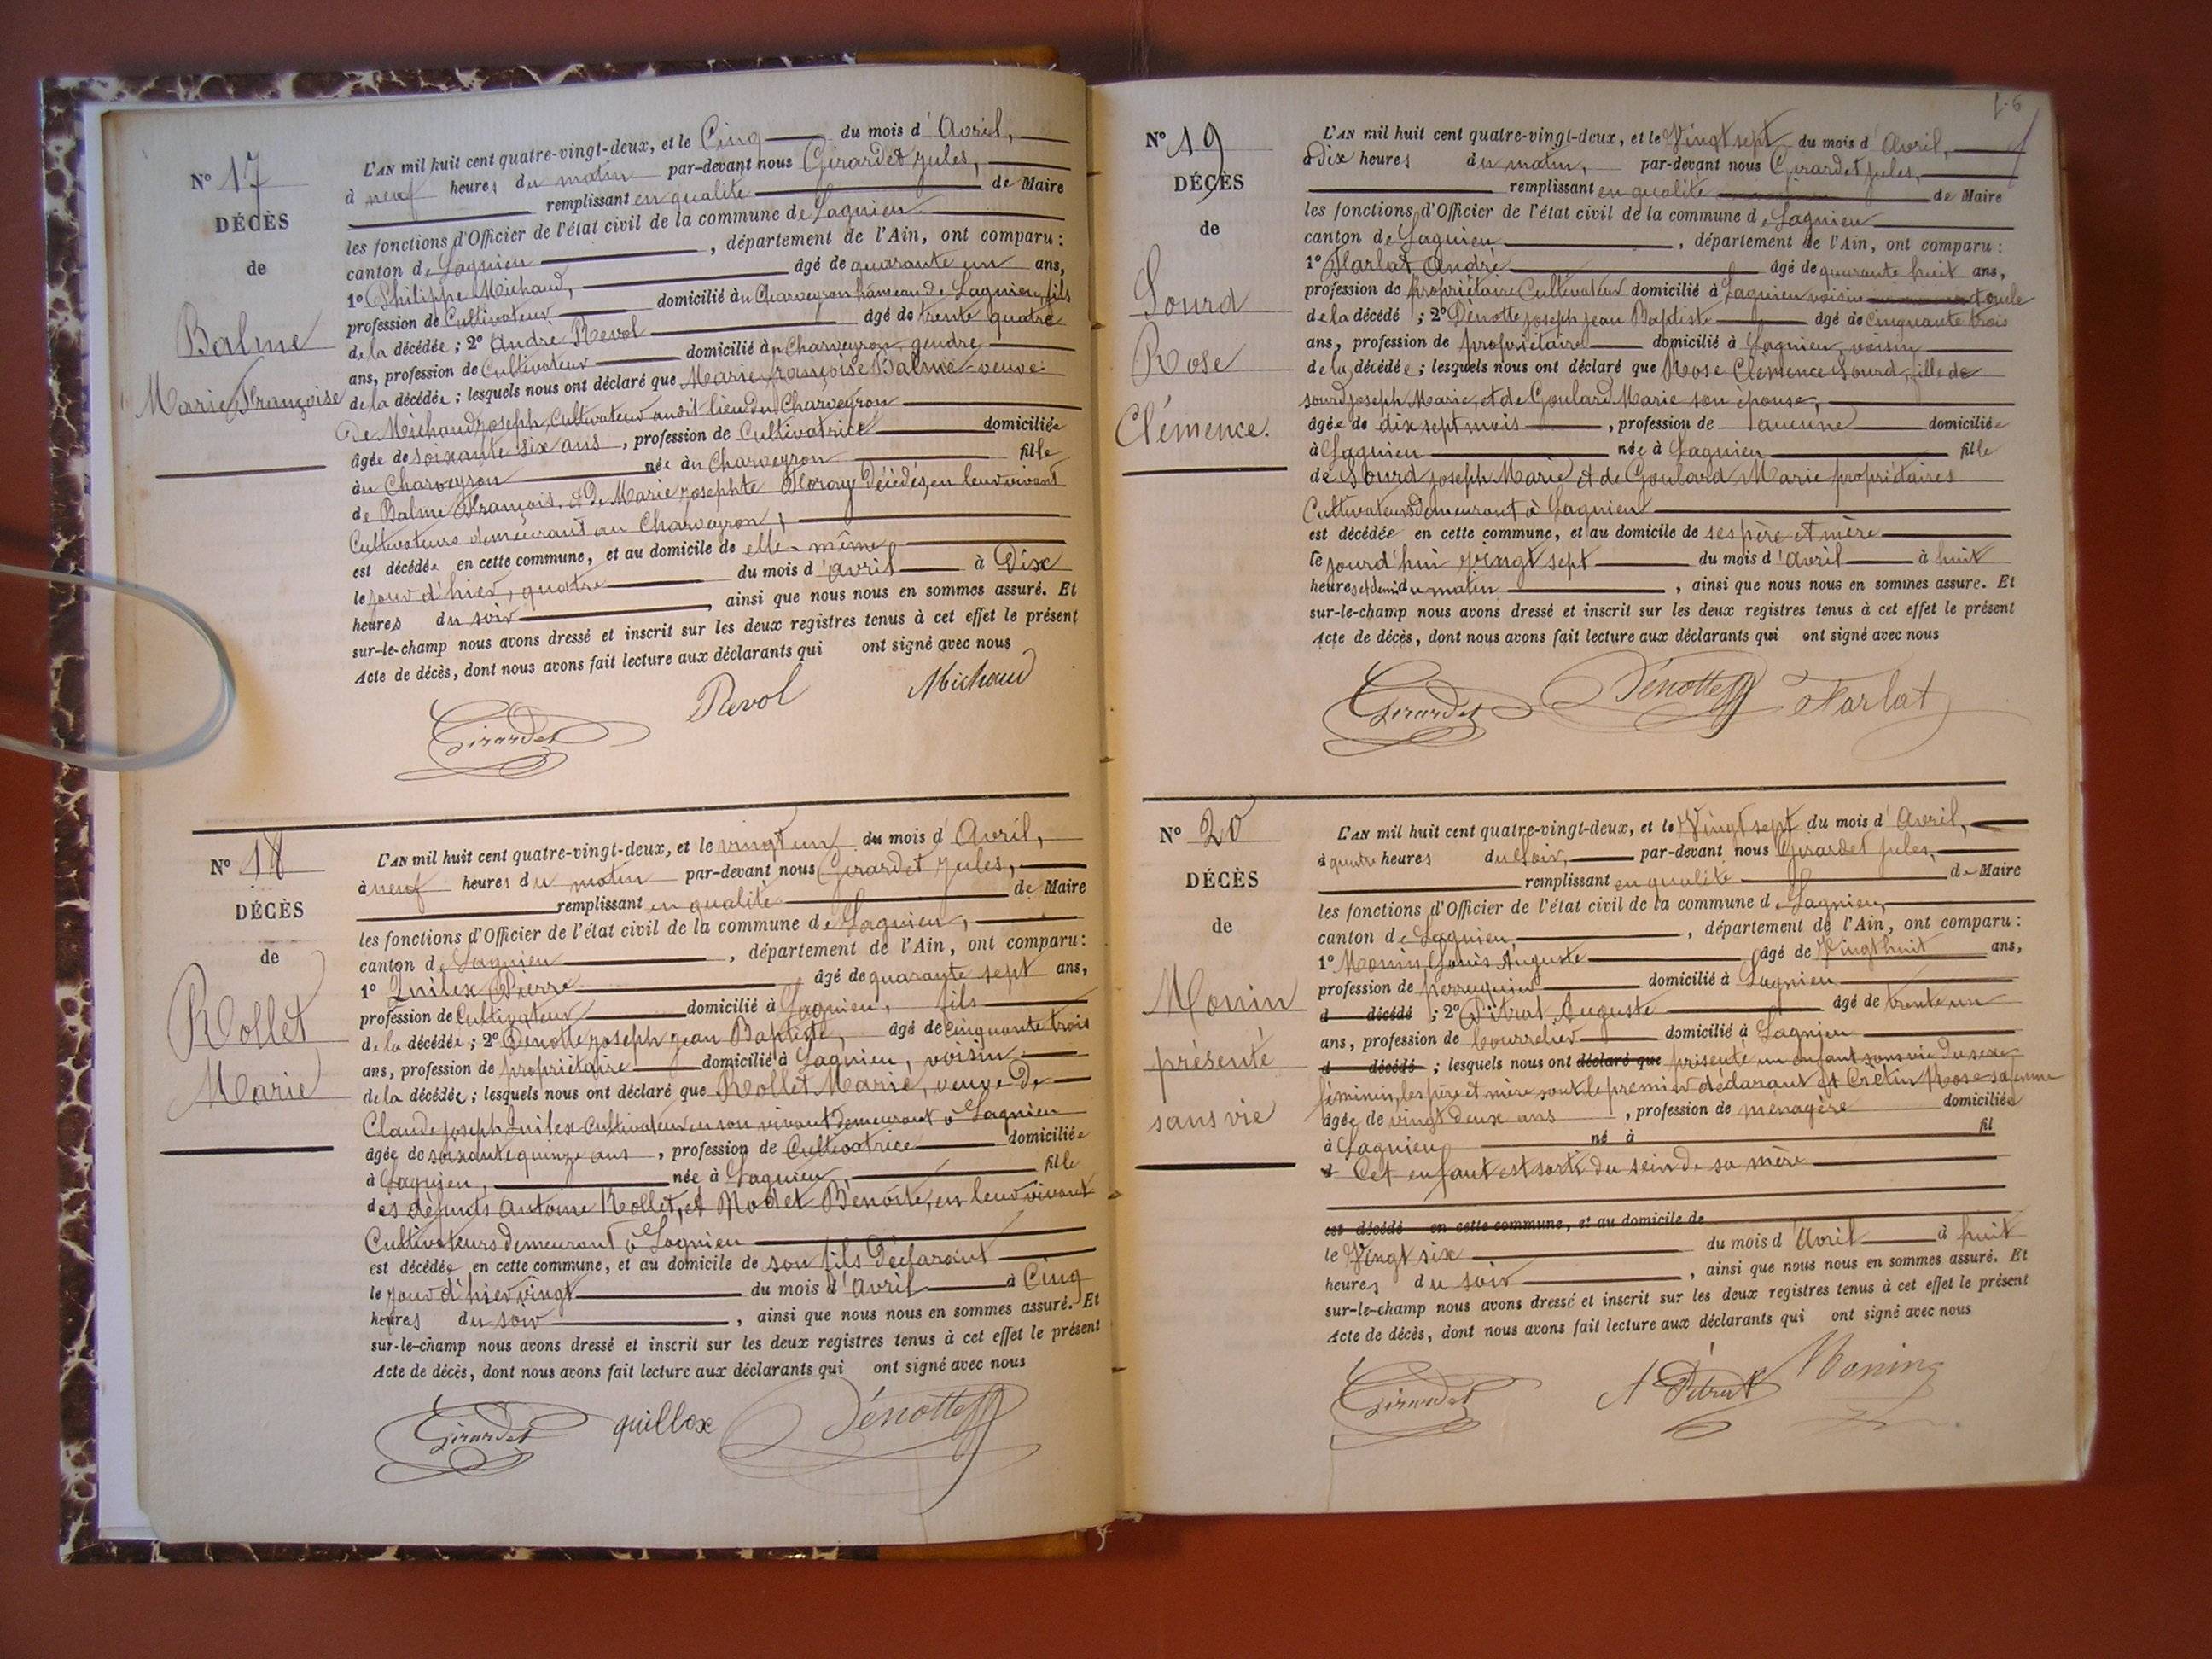 N° 17
DÉCÈS
de
Balme
Marie Françoise
L'AN mil huit cent quatre-vingt-deux, et le Cinq du mois d'Avril,
à neuf heures du matin par-devant nous Girardet Jules,
remplissant en qualité de Maire
les fonctions d'Officier de l'état civil de la commune de Lagnieu
canton de Lagnieu, département de l'Ain, ont comparu :
1° Philippe Michaud, âgé de quarante un ans,
profession de Cultivateur domicilié au Charveyron hameau de Lagnieu, fils
de la décédée ; 2° André Revol âgé de trente quatre
ans, profession de Cultivateur domicilié au Charveyron, gendre
de la décédée ; lesquels nous ont déclaré que Marie Françoise Balme veuve
de Michaud Joseph, Cultivateur audit lieu du Charveyron
âgée de soixante six ans, profession de Cultivatrice domiciliée
au Charveyron née au Charveyron fille
de Balme François, et de Marie Josephte décédés, en leur vivant
Cultivateurs demeurant au Charveyron ;
est décédée en cette commune, et au domicile de elle-même
le jour d'hier, quatre du mois d'avril à Dix
heures du soir, ainsi que nous nous en sommes assuré. Et
sur-le-champ nous avons dressé et inscrit sur les deux registres tenus à cet effet le présent
Acte de décès, dont nous avons fait lecture aux déclarants qui ont signé avec nous
Girardet Revol Michaud
N° 18
DÉCÈS
de
Rollet
Marie
L'AN mil huit cent quatre-vingt-deux, et le vingt un du mois d'Avril,
à neuf heures du matin par-devant nous Girardet Jules,
remplissant en qualité de Maire
les fonctions d'Officier de l'état civil de la commune de Lagnieu,
canton de Lagnieu, département de l'Ain, ont comparu :
1° Quilex Pierre âgé de quarante sept ans,
profession de Cultivateur domicilié à Lagnieu, fils
de la décédée ; 2° Dénotte Joseph Jean Baptiste, âgé de cinquante trois
ans, profession de propriétaire domicilié à Lagnieu, voisin
de la décédée ; lesquels nous ont déclaré que Rollet Marie, veuve de
Claude Joseph Quilex Cultivateur en son vivant demeurant à Lagnieu
âgée de soixante quinze ans, profession de Cultivatrice domiciliée
à Lagnieu, née à Lagnieu, fille
des défunts Antoine Rollet, et Benoite, en leur vivant
Cultivateurs demeurant à Lagnieu
est décédée en cette commune, et au domicile de son fils déclarant
le jour d'hier vingt du mois d'Avril à Cinq
heures du soir, ainsi que nous nous en sommes assuré. Et
sur-le-champ nous avons dressé et inscrit sur les deux registres tenus à cet effet le présent
Acte de décès, dont nous avons fait lecture aux déclarants qui ont signé avec nous
Girardet quillex Dénotte
N° 19
DÉCÈS
de
Sourd
Rose
Clémence.
L'AN mil huit cent quatre-vingt-deux, et le Vingt sept du mois d'Avril,
à dix heures du matin, par-devant nous Girardet Jules,
remplissant en qualité de Maire
les fonctions d'Officier de l'état civil de la commune de Lagnieu
canton de Lagnieu, département de l'Ain, ont comparu :
1° Farlat André âgé de quarante huit ans,
profession de propriétaire Cultivateur domicilié à Lagnieu voisin
de la décédé ; 2° Dénotte Joseph Jean Baptiste âgé de cinquante trois
ans, profession de propriétaire domicilié à Lagnieu, voisin
de la décédée ; lesquels nous ont déclaré que Rose Clémence Sourd, fille de
Sourd Joseph Marie, et de Goulard Marie son épouse,
âgée de dix sept mois, profession de aucune domiciliée
à Lagnieu née à Lagnieu fille
de Sourd Joseph Marie et de Goulard Marie propriétaires
Cultivateurs demeurant à Lagnieu
est décédée en cette commune, et au domicile de ses père et mère
le jourd'hui vingt sept du mois d'Avril à huit
heures et demi du matin, ainsi que nous nous en sommes assuré. Et
sur-le-champ nous avons dressé et inscrit sur les deux registres tenus à cet effet le présent
Acte de décès, dont nous avons fait lecture aux déclarants qui ont signé avec nous
Girardet Dénotte Farlat
N° 20
DÉCÈS
de
Monin
présenté
sans vie
L'AN mil huit cent quatre-vingt-deux, et le Vingt sept du mois d'Avril,
à quatre heures du soir, par-devant nous Girardet Jules,
remplissant en qualité de Maire
les fonctions d'Officier de l'état civil de la commune de Lagnieu,
canton de Lagnieu, département de l'Ain, ont comparu :
1° Monin Louis Auguste âgé de Vingt huit ans,
profession de perruquier domicilié à Lagnieu
d décédé ; 2° Pitrat Auguste âgé de trente un
ans, profession de bourrelier domicilié à Lagnieu
d décédé ; lesquels nous ont déclaré que présenté un enfant sans vie du sexe
féminin, les père et mère sont le premier déclarant et Crétin Rose sa femme
âgée de vingt deux ans, profession de ménagère domiciliée
à Lagnieu né à fil
d Cet enfant est sorti du sein de sa mère
est décédé en cette commune, et au domicile de
le Vingt six du mois d'Avril à huit
heures du soir, ainsi que nous nous en sommes assuré. Et
sur-le-champ nous avons dressé et inscrit sur les deux registres tenus à cet effet le présent
Acte de décès, dont nous avons fait lecture aux déclarants qui ont signé avec nous
Girardet A Pitrat Monin